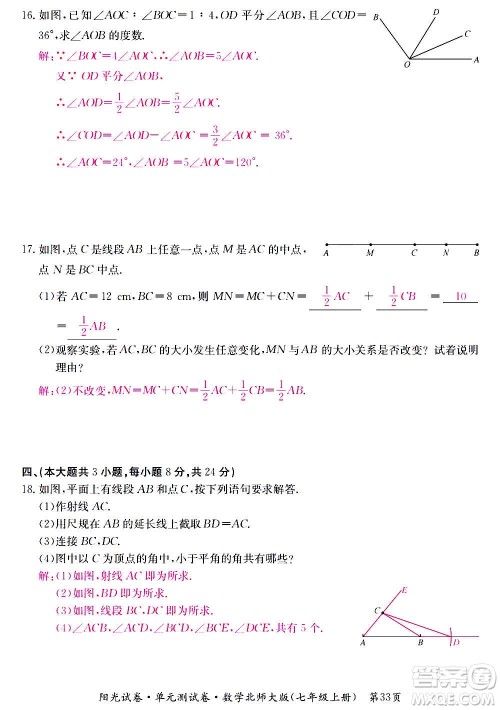 16. 如图,已知∠AOC:∠BOC=1:4,OD 平分∠AOB,且∠COD=
36°,求∠AOB 的度数.
解:∵∠BOC=4∠AOC,∴∠AOB=5∠AOC.
又∵ OD 平分∠AOB,
∴∠AOD=1/2∠AOB=5/2∠AOC.
∴∠COD=∠AOD-∠AOC=3/2∠AOC=36°.
∴∠AOC=24°,∴∠AOB=5∠AOC=120°.
B D C O A
17. 如图,点 C 是线段 AB 上任意一点,点 M 是 AC 的中点,
点 N 是 BC 中点.
A M C N B
(1)若 AC=12 cm,BC=8 cm,则 MN= 1/2 AC + 1/2 CB = 10
= 1/2 AB .
(2)观察实验,若AC,BC 的大小发生任意变化,MN与AB 的大小关系是否改变?试着说明
理由?
解:(2)不改变,MN=MC+CN=1/2AC+1/2CB=1/2AB.
四、(本大题共 3 小题,每小题 8 分,共 24 分)
18. 如图,平面上有线段 AB 和点 C,按下列语句要求解答.
(1)作射线 AC.
(2)用尺规在 AB 的延长线上截取 BD=AB.
(3)连接 CB,CD.
(4)图中以 C 为顶点的角中,小于平角的角共有哪些?
解:(1)如图,射线 AC 即为所求.
(2)如图,BD 即为所求.
(3)如图,线段 BC,DC 即为所求.
(4)∠ACB,∠ACD,∠BCD,∠BCE,∠DCE.
E C A B D
阳光试卷·单元测试卷·数学北师大版(七年级上册) 第33页